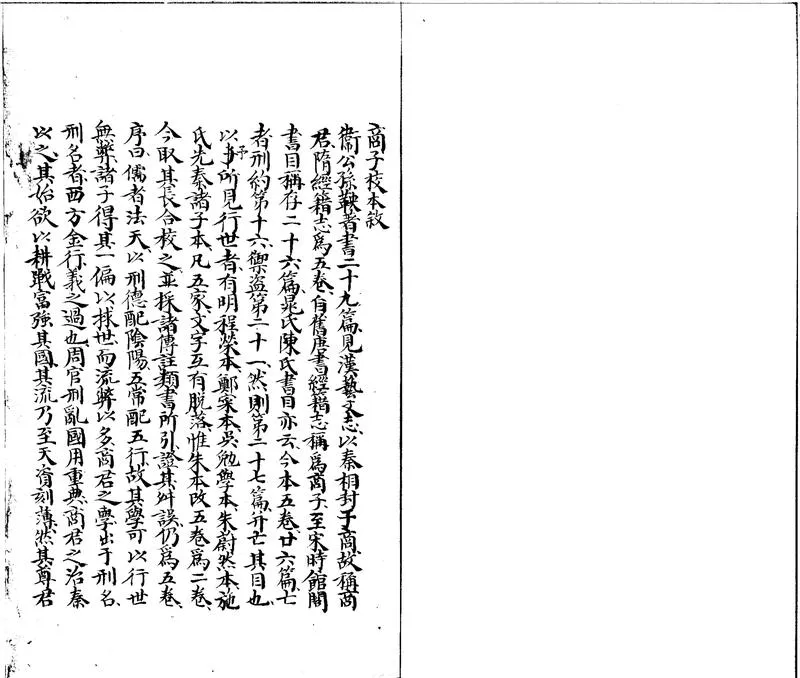 商子校本敘
衞公孫鞅著書二十九篇見漢藝文志以秦相封于商故稱商
君隋經籍志爲五卷自舊唐書經籍志稱爲商子至宋時館閣
書目稱存二十六篇晁氏陳氏書目亦云今本五卷廿六篇亡
者刑約第十六禦盜第二十一然則第二十七篇并亡其目也
以予所見行世者有明程榮本鄭寀本吳勉學本朱蔚然本施
氏先秦諸子本凡五家文字互有脫落惟朱本改五卷爲二卷
今取其長合校之並採諸傳註類書所引證其舛誤仍爲五卷
序曰儒者法天以刑德配陰陽五常配五行故其學可以行世
無弊諸子得其一偏以捄世而流弊以多商君之學出于刑名
刑名者西方金行義之過也周官刑亂國用重典商君之治秦
以之其始欲以耕戰富強其國其流乃至天資刻薄然其尊君